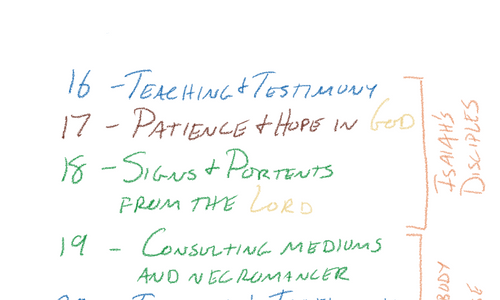 16 - TEACHING & TESTIMONY
17 - PATIENCE & HOPE IN GOD
18 - SIGNS & PORTENTS
FROM THE LORD
19 - CONSULTING MEDIUMS
AND NECROMANCER
ISAIAH'S
DISCIPLES
BODY